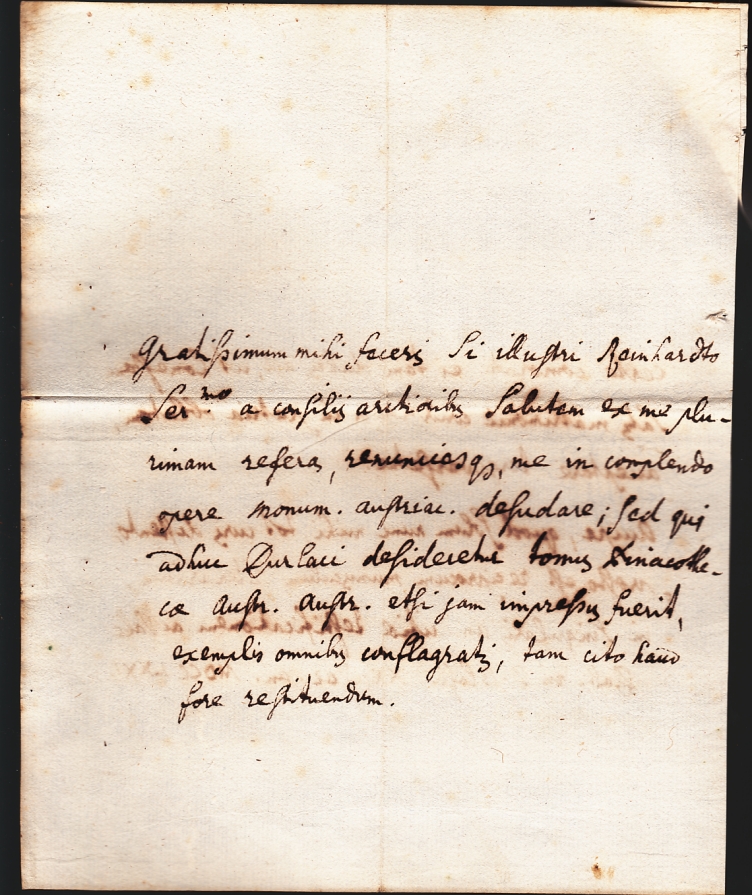 Gratissimum mihi feceris si illustri Reinhardto
Ser.mo a consiliis arctioribus Salutem ex me plu-
rimam referas, renunciesq, me in complendo
opere monum. austriac. desudare; sed qui
adhuc Durlaci desideretur tomus Pinacothe-
cæ Austr. Austr. etsi jam impressus fuerit,
exemplis omnibus conflagratis, tam cito haud
fore restituendum.